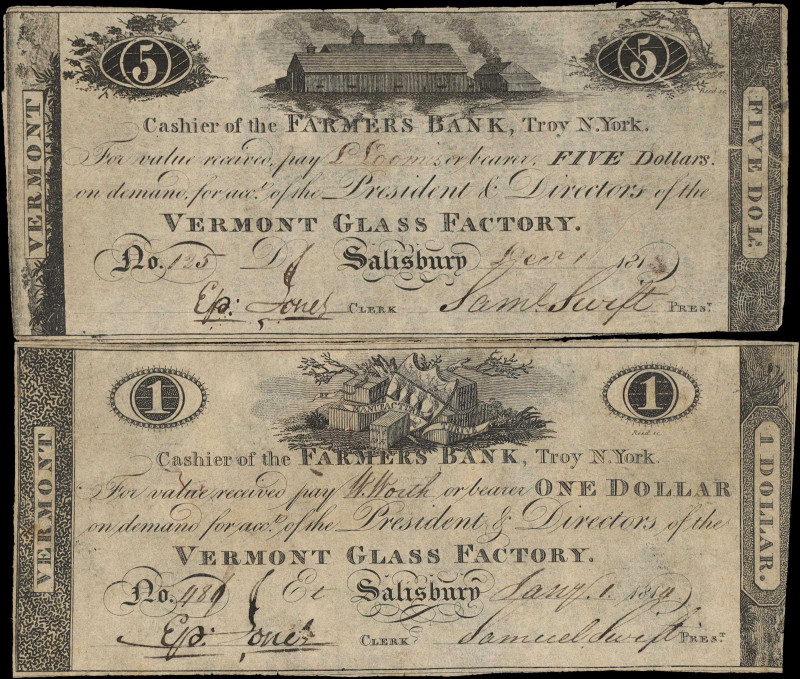 5 5
Read sc.
VERMONT
FIVE DOL.
Cashier of the FARMERS BANK, Troy N.York.
For value received, pay L Loomis or bearer, FIVE Dollars.
on demand, for acct. of the President & Directors of the
VERMONT GLASS FACTORY.
No. 125 D Salisbury Decr 1 181
Ep: Jones CLERK Saml. Swift PREST.
1 1
MANUFACTUR
Read. sc.
VERMONT
1 DOLLAR.
Cashier of the FARMERS BANK, Troy N.York.
For value received pay W. Worth or bearer ONE DOLLAR
on demand for acct. of the President & Directors of the
VERMONT GLASS FACTORY.
No. 486 Et Salisbury Jany. 1. 1814
Ep: Jones CLERK Samuel Swift PREST